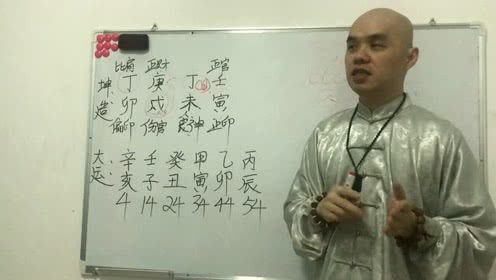 比肩 正才 正官
坤 丁 庚 丁 壬
造: 卯 戌 未 寅
偏印 伤官 食神 正印
大 辛 壬 癸 甲 乙 丙
运: 亥 子 丑 寅 卯 辰
4 14 24 34 44 54